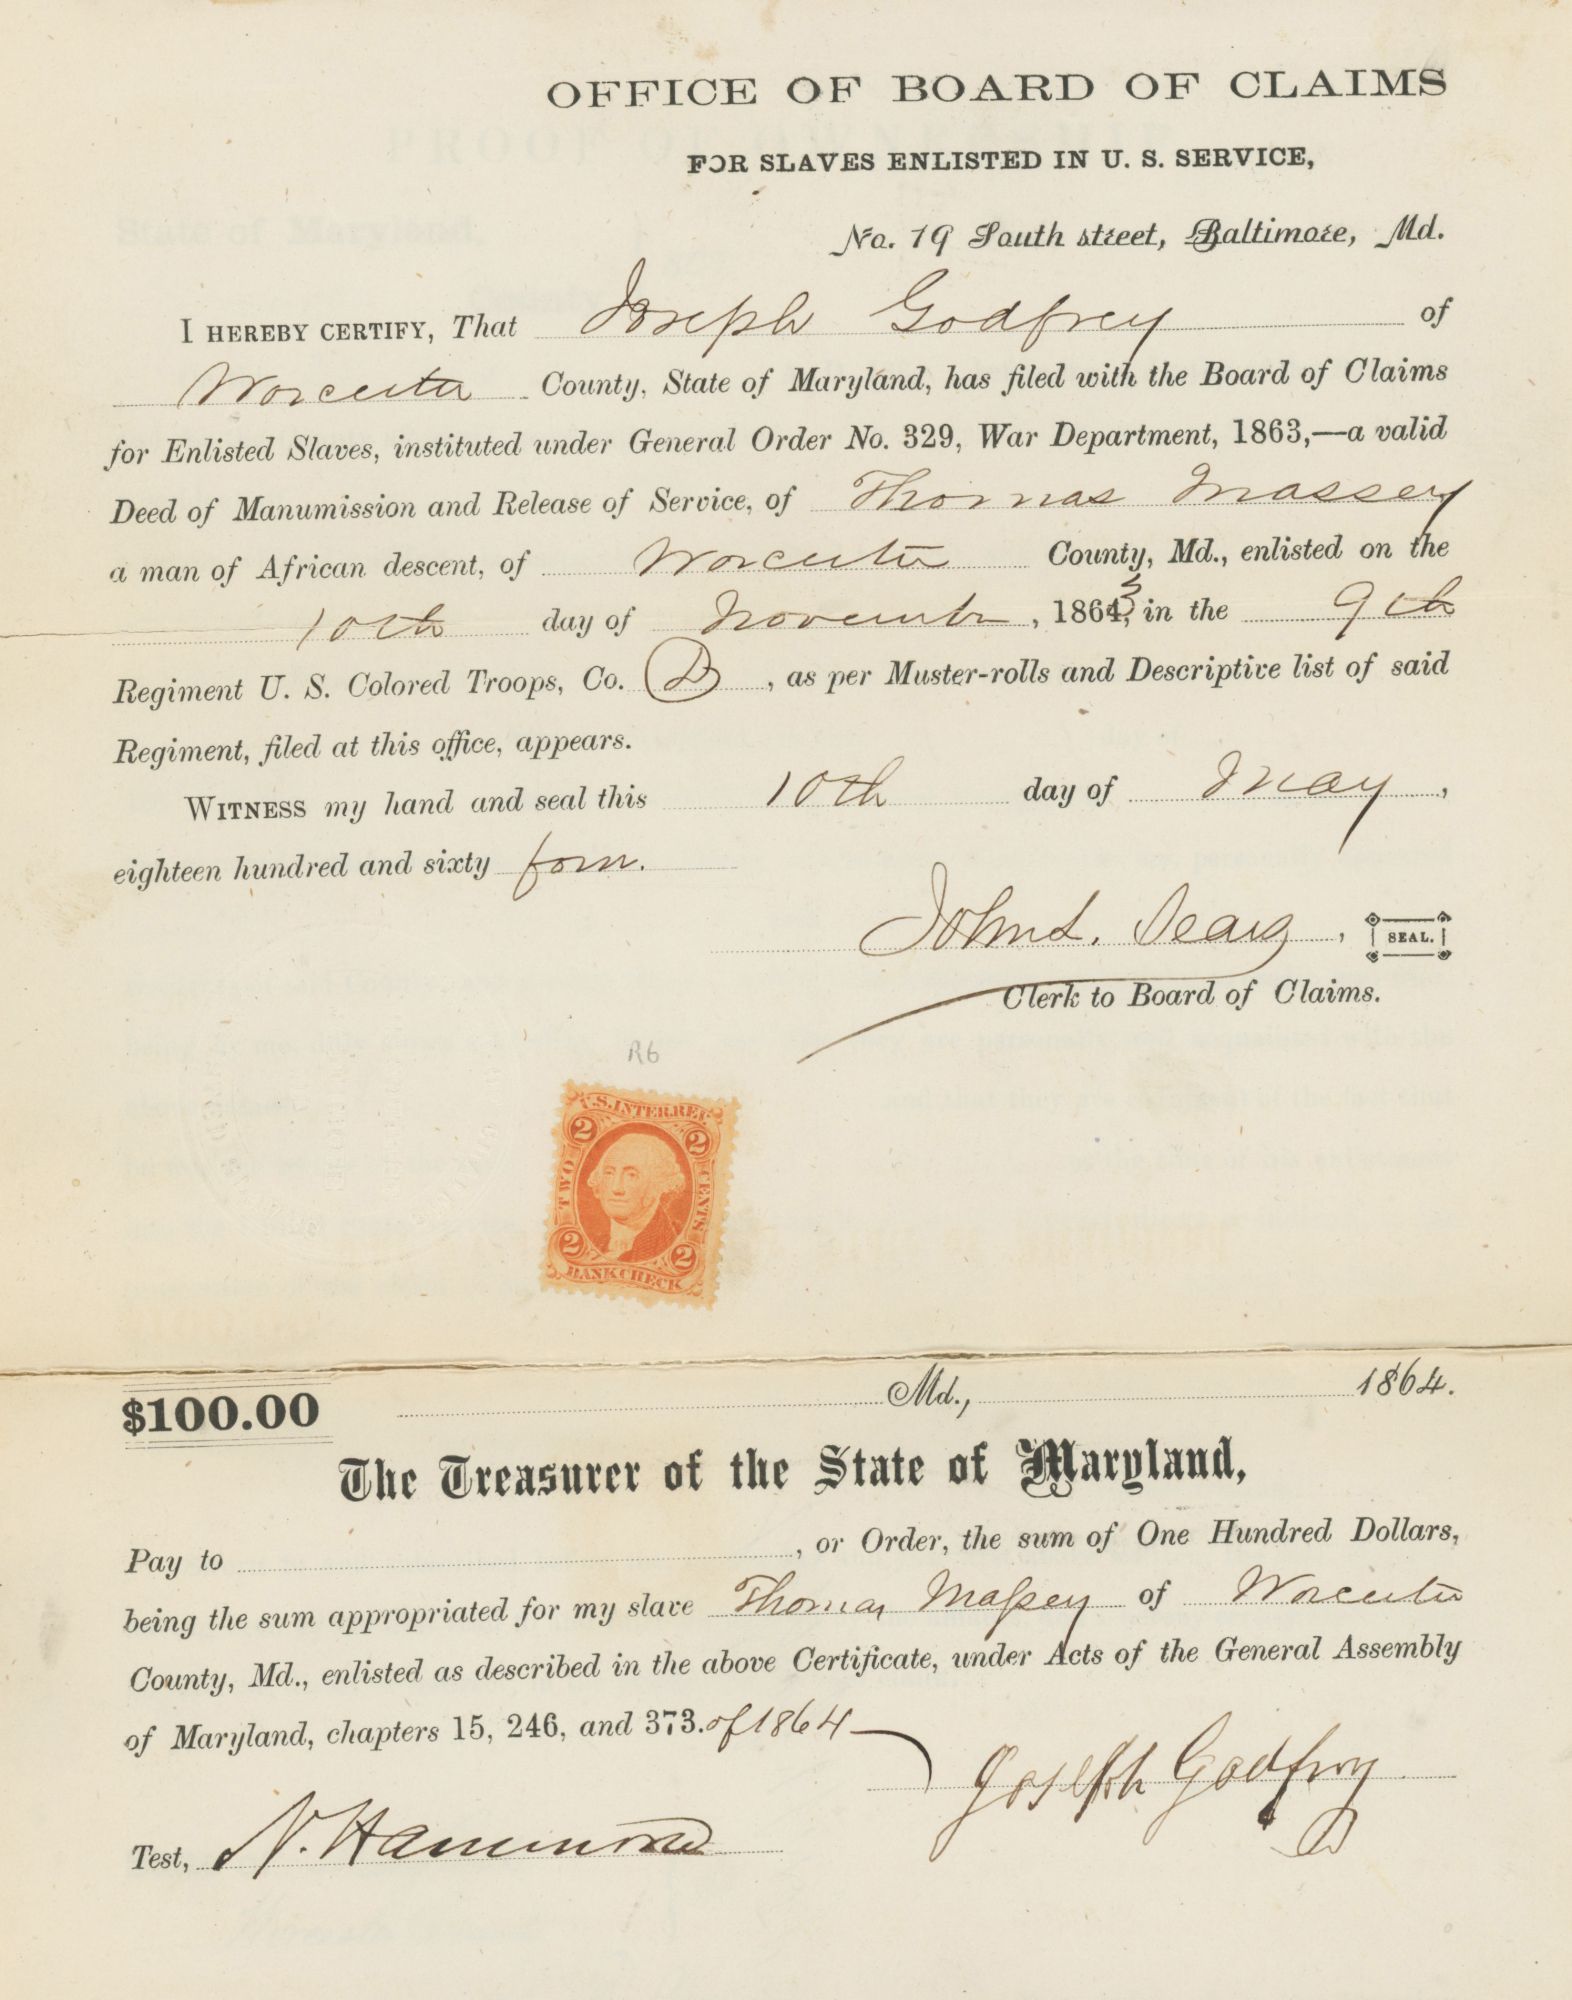 OFFICE OF BOARD OF CLAIMS
FOR SLAVES ENLISTED IN U. S. SERVICE,
No. 19 South street, Baltimore, Md.
I HEREBY CERTIFY, That Joseph Godfrey of
Worcester County, State of Maryland, has filed with the Board of Claims
for Enlisted Slaves, instituted under General Order No. 329, War Department, 1863,—a valid
Deed of Manumission and Release of Service, of Thomas Massey
a man of African descent, of Worcester County, Md., enlisted on the
10th day of November, 1863, in the 9th
Regiment U. S. Colored Troops, Co. D, as per Muster-rolls and Descriptive list of said
Regiment, filed at this office, appears.
WITNESS my hand and seal this 10th day of May,
eighteen hundred and sixty four.
John S. Sears, SEAL.
Clerk to Board of Claims.
R6
U.S. INTER. REV.
2 2
TWO CENTS
2 2
BANK CHECK
$100.00 Md., 1864.
The Treasurer of the State of Maryland,
Pay to , or Order, the sum of One Hundred Dollars,
being the sum appropriated for my slave Thomas Massey of Worcester
County, Md., enlisted as described in the above Certificate, under Acts of the General Assembly
of Maryland, chapters 15, 246, and 373. of 1864
Joseph Godfrey
Test, N. Hammond